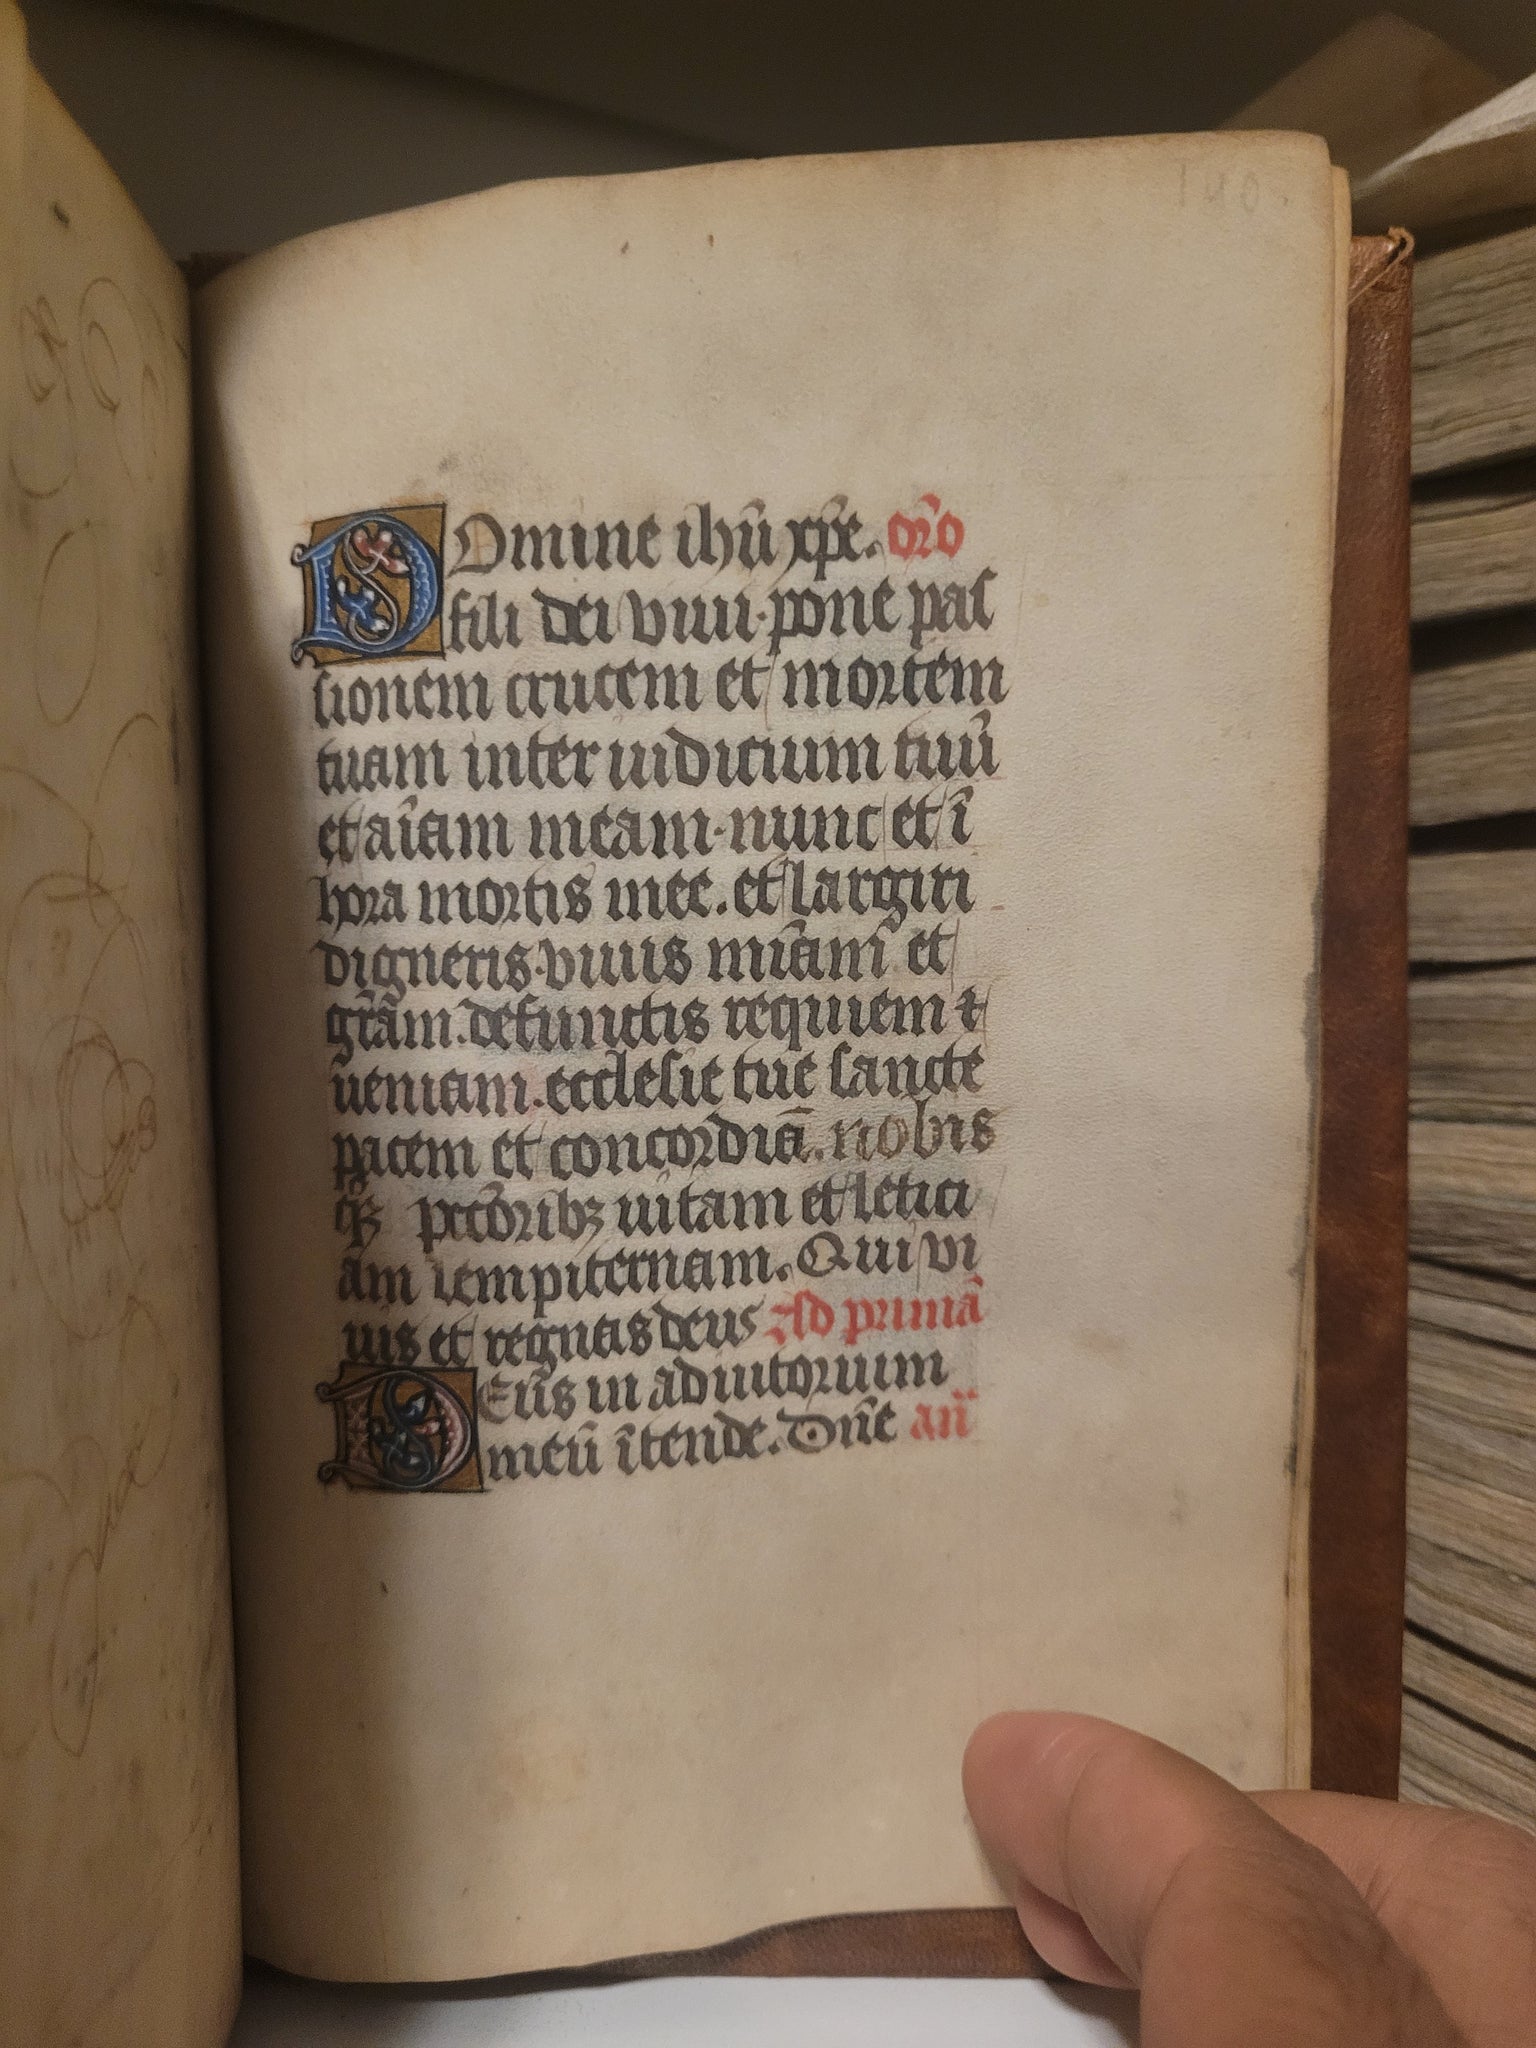 140.
Domine ihū xp̄e. or̄o
fili dei viui·pone pas
sionem crucem et mortem
tuam inter iudicium tuū
et aīam meam·nunc et ī
hora mortis mee. et largiri
digneris·viuis mīam et
gr̄am. defunctis requiem ⁊
ueniam. ecclesie tue sancte
pacem et concordiā. nobis
qꝫ pctōribꝫ uitam et letici
am sempiternam. Qui vi
uis et regnas deus Ad primā
Deus in adiutorium
meū ītende. Dn̄e an̄